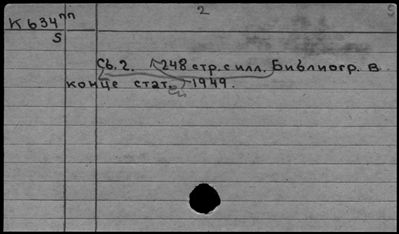 2
К 634 пп
5
Сб. 2. 248 стр. с илл. Библиогр. в
конце стат. 1949.